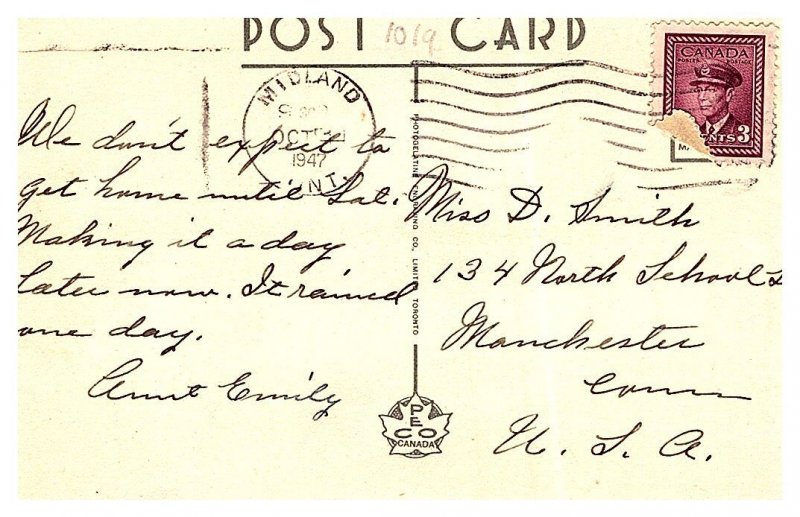 POST CARD
1019
MIDLAND
OCT
1947
ONT.
CANADA
POSTES POSTAGE
CENTS 3
We don't expect to
get home until Sat.
Making it a day
later now. It rained
one day.
Aunt Emily
PHOTOGELATINE ENGRAVING CO. LIMITED TORONTO
Miss D. Smith
134 North School
Manchester
Conn
U. S. A.
PECO
CANADA